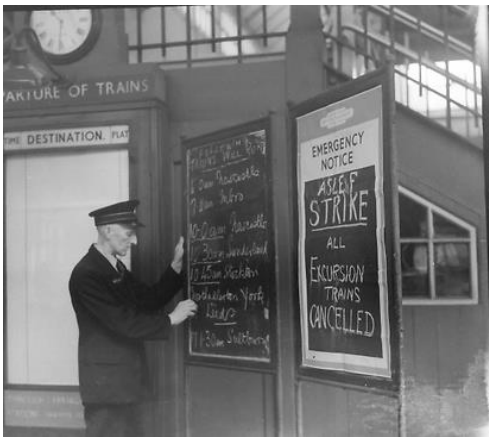 PARTURE OF TRAINS
TIME DESTINATION. PLAT
Trains Will Run
am Newcastle
am
10.0am Newcastle
10.30am Sunderland
10.45am Stockton
Northallerton York
Leeds
11.30am Saltburn
EMERGENCY
NOTICE
ASLEF
STRIKE
ALL
EXCURSION
TRAINS
CANCELLED